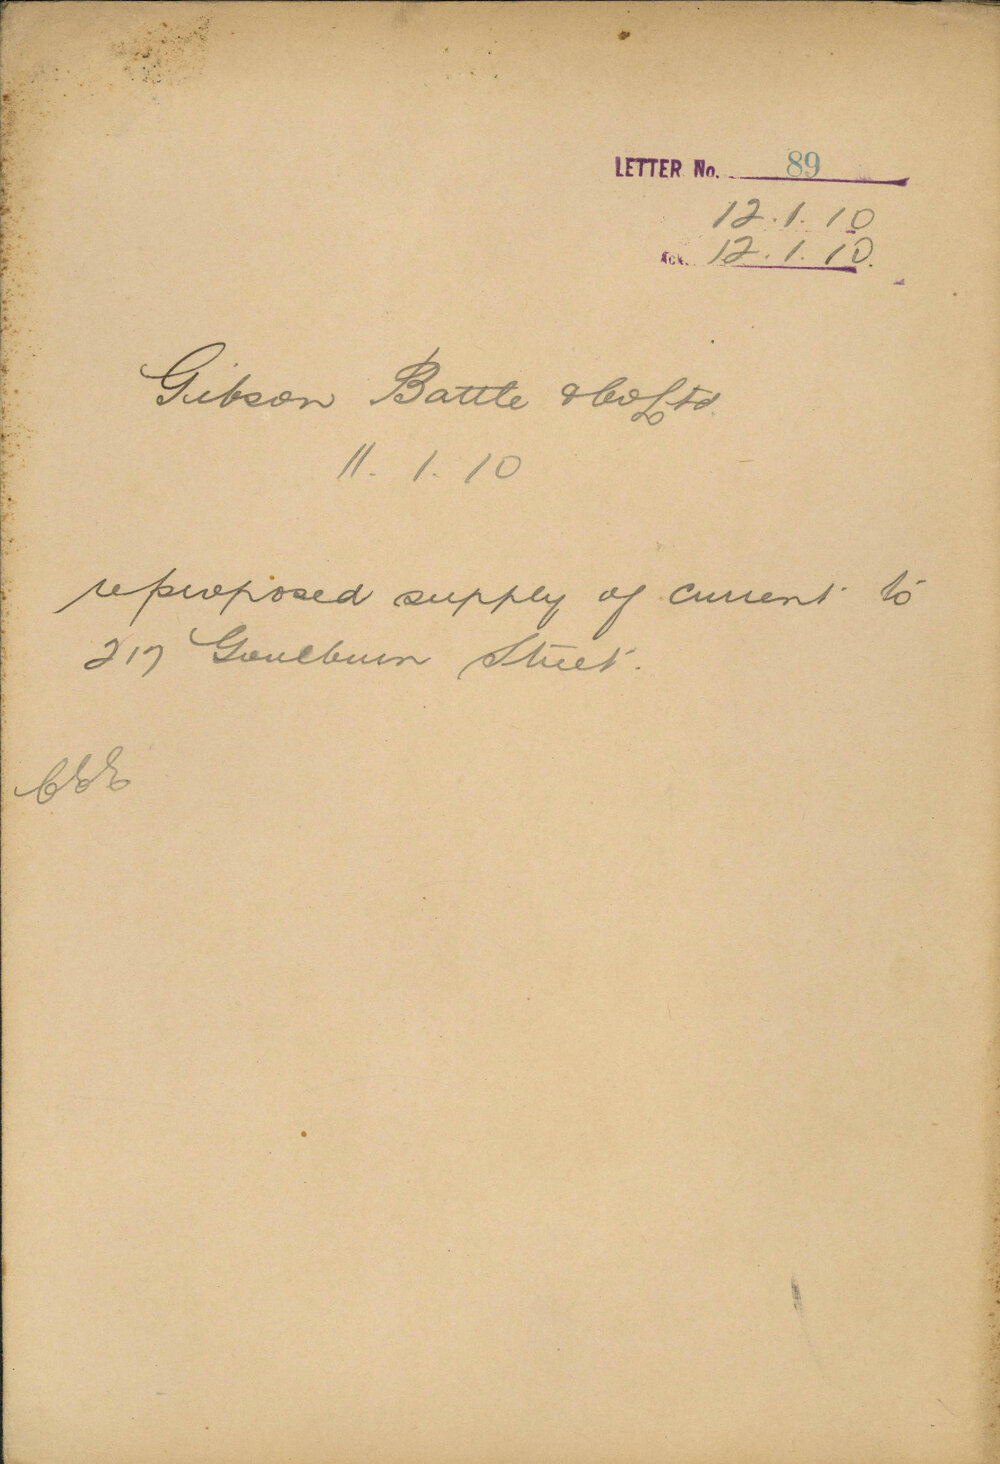 LETTER No. 89
12.1.10
Ack. 12.1.10.
Gibson Battle & Co Ltd.
11.1.10
re proposed supply of current to
217 Goulburn Street.
CEE